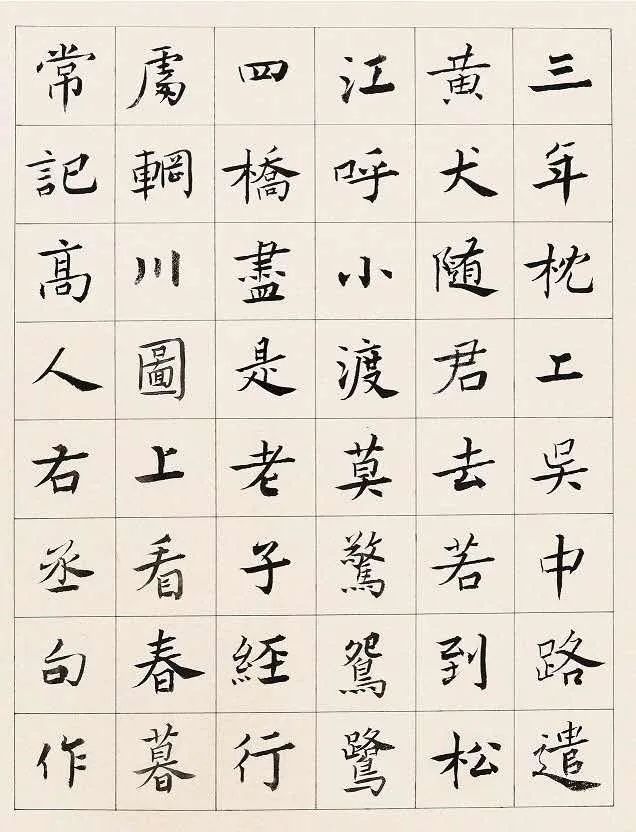 三年枕上吳中路遣
黄犬随君去若到松
江呼小渡莫驚鴛鷺
四橋盡是老子經行
處輞川圖上看春暮
常記髙人右丞句作